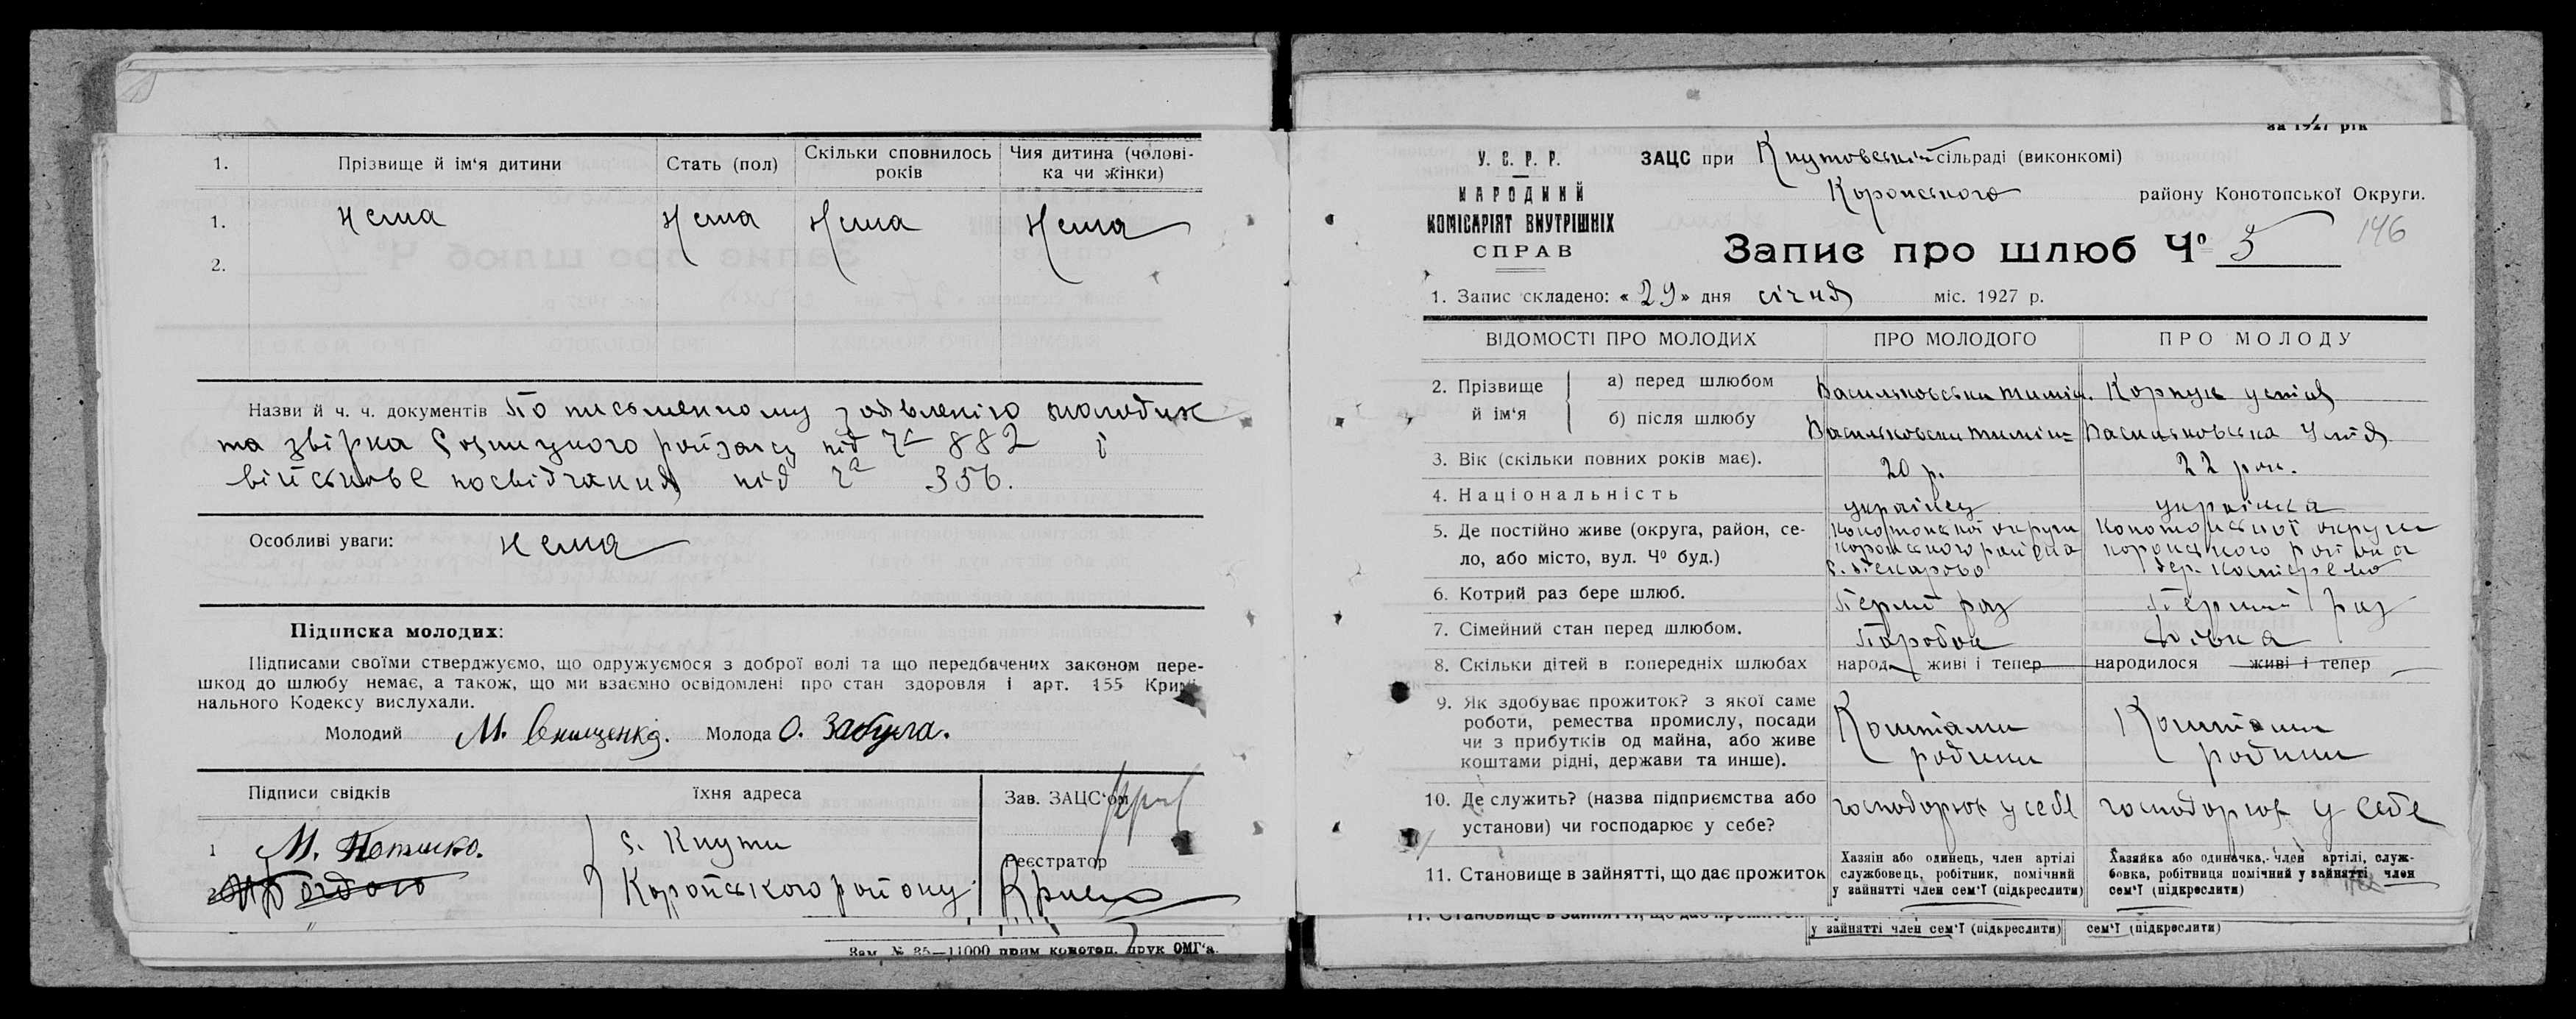 1. Прізвище й ім'я дитини Стать (пол) Скільки сповнилось років Чия дитина (чоловіка чи жінки)
1. Нема Нема Нема Нема
2.
Назви й ч. ч. документів По письменному заявленію молодих
та звірка Сосницкого райзагсу під Ч° 882 і
військове посвідчання під Ч° 356.
Особливі уваги: нема
Підписка молодих:
Підписами своїми стверджуємо, що одружуємося з доброї волі та що передбачених законом пере-
шкод до шлюбу немає, а також, що ми взаємно освідомлені про стан здоровля і арт. 155 Кримі-
нального Кодексу вислухали.
Молодий М. Онищенко. Молода О. Забула.
Підписи свідків їхня адреса Зав. ЗАЦС'ом
1 М. Потишко. с. Кнути
2 Коропського району
Реєстратор
Зам. № 35—11000 прим конотоп. друк ОМГ'а.
за 1927 рік
У. С. Р. Р.
НАРОДНИЙ
КОМІСАРІЯТ ВНУТРІШНІХ
СПРАВ
ЗАЦС при Кнутовській сільраді (виконкомі)
Коропського району Конотопської Округи.
146
Запис про шлюб Ч° 5
1. Запис складено: « 29 » дня січня міс. 1927 р.
ВІДОМОСТІ ПРО МОЛОДИХ ПРО МОЛОДОГО ПРО МОЛОДУ
2. Прізвище й ім'я
а) перед шлюбом Васильковськи Корпук устія
б) після шлюбу Васильковски Васильковська Устія
3. Вік (скільки повних років має). 20 р. 22 рок.
4. Національність українец українка
5. Де постійно живе (округа, район, се-
ло, або місто, вул. Ч° буд.)
Конотопської округи
коропського района
с. Пекарово
Конотопської округи
коропського района
дер.
6. Котрий раз бере шлюб. Перший раз Перший раз
7. Сімейний стан перед шлюбом. Паробок Дівка
8. Скільки дітей в попередніх шлюбах народ. живі і тепер народилося живі і тепер
9. Як здобуває прожиток? з якої саме
роботи, ремества промислу, посади
чи з прибутків од майна, або живе
коштами рідні, держави та инше).
Коштами
родини
Коштами
родини
10. Де служить? (назва підприємства або
установи) чи господарює у себе?
господарює у себе господарює у себе
11. Становище в зайнятті, що дає прожиток
Хазяін або одинець, член артілі
службовець, робітник, помічний
у зайнятті член сем'ї (підкреслити)
Хазяйка або одиначка, член артілі, служ-
бовка, робітниця помічний у зайнятті член
сем'ї (підкреслити)
11. Становище в зайнятті, що дає прожиток
у зайнятті член сем'ї (підкреслити) сем'ї (підкреслити)